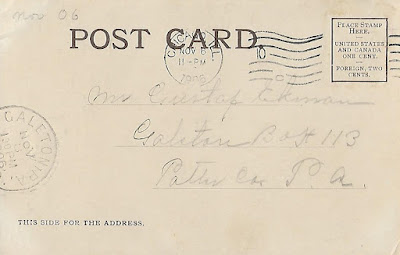 nov 06
POST CARD.
CHICAGO, ILL.
NOV 6
11-PM
1906
PLACE STAMP
HERE.
UNITED STATES
AND CANADA
ONE CENT.
FOREIGN, TWO
CENTS.
Mr Gustaf
Galeton Box 113
Potter Co. P.A.
GALETON, PA.
NOV
THIS SIDE FOR THE ADDRESS.